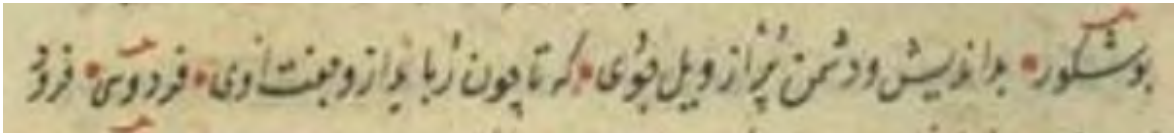 بوشکور • بداندیش و دشمن پُر از ویل جُوی • که تا چون رُباید ازو جفت اوی • فردوسی •